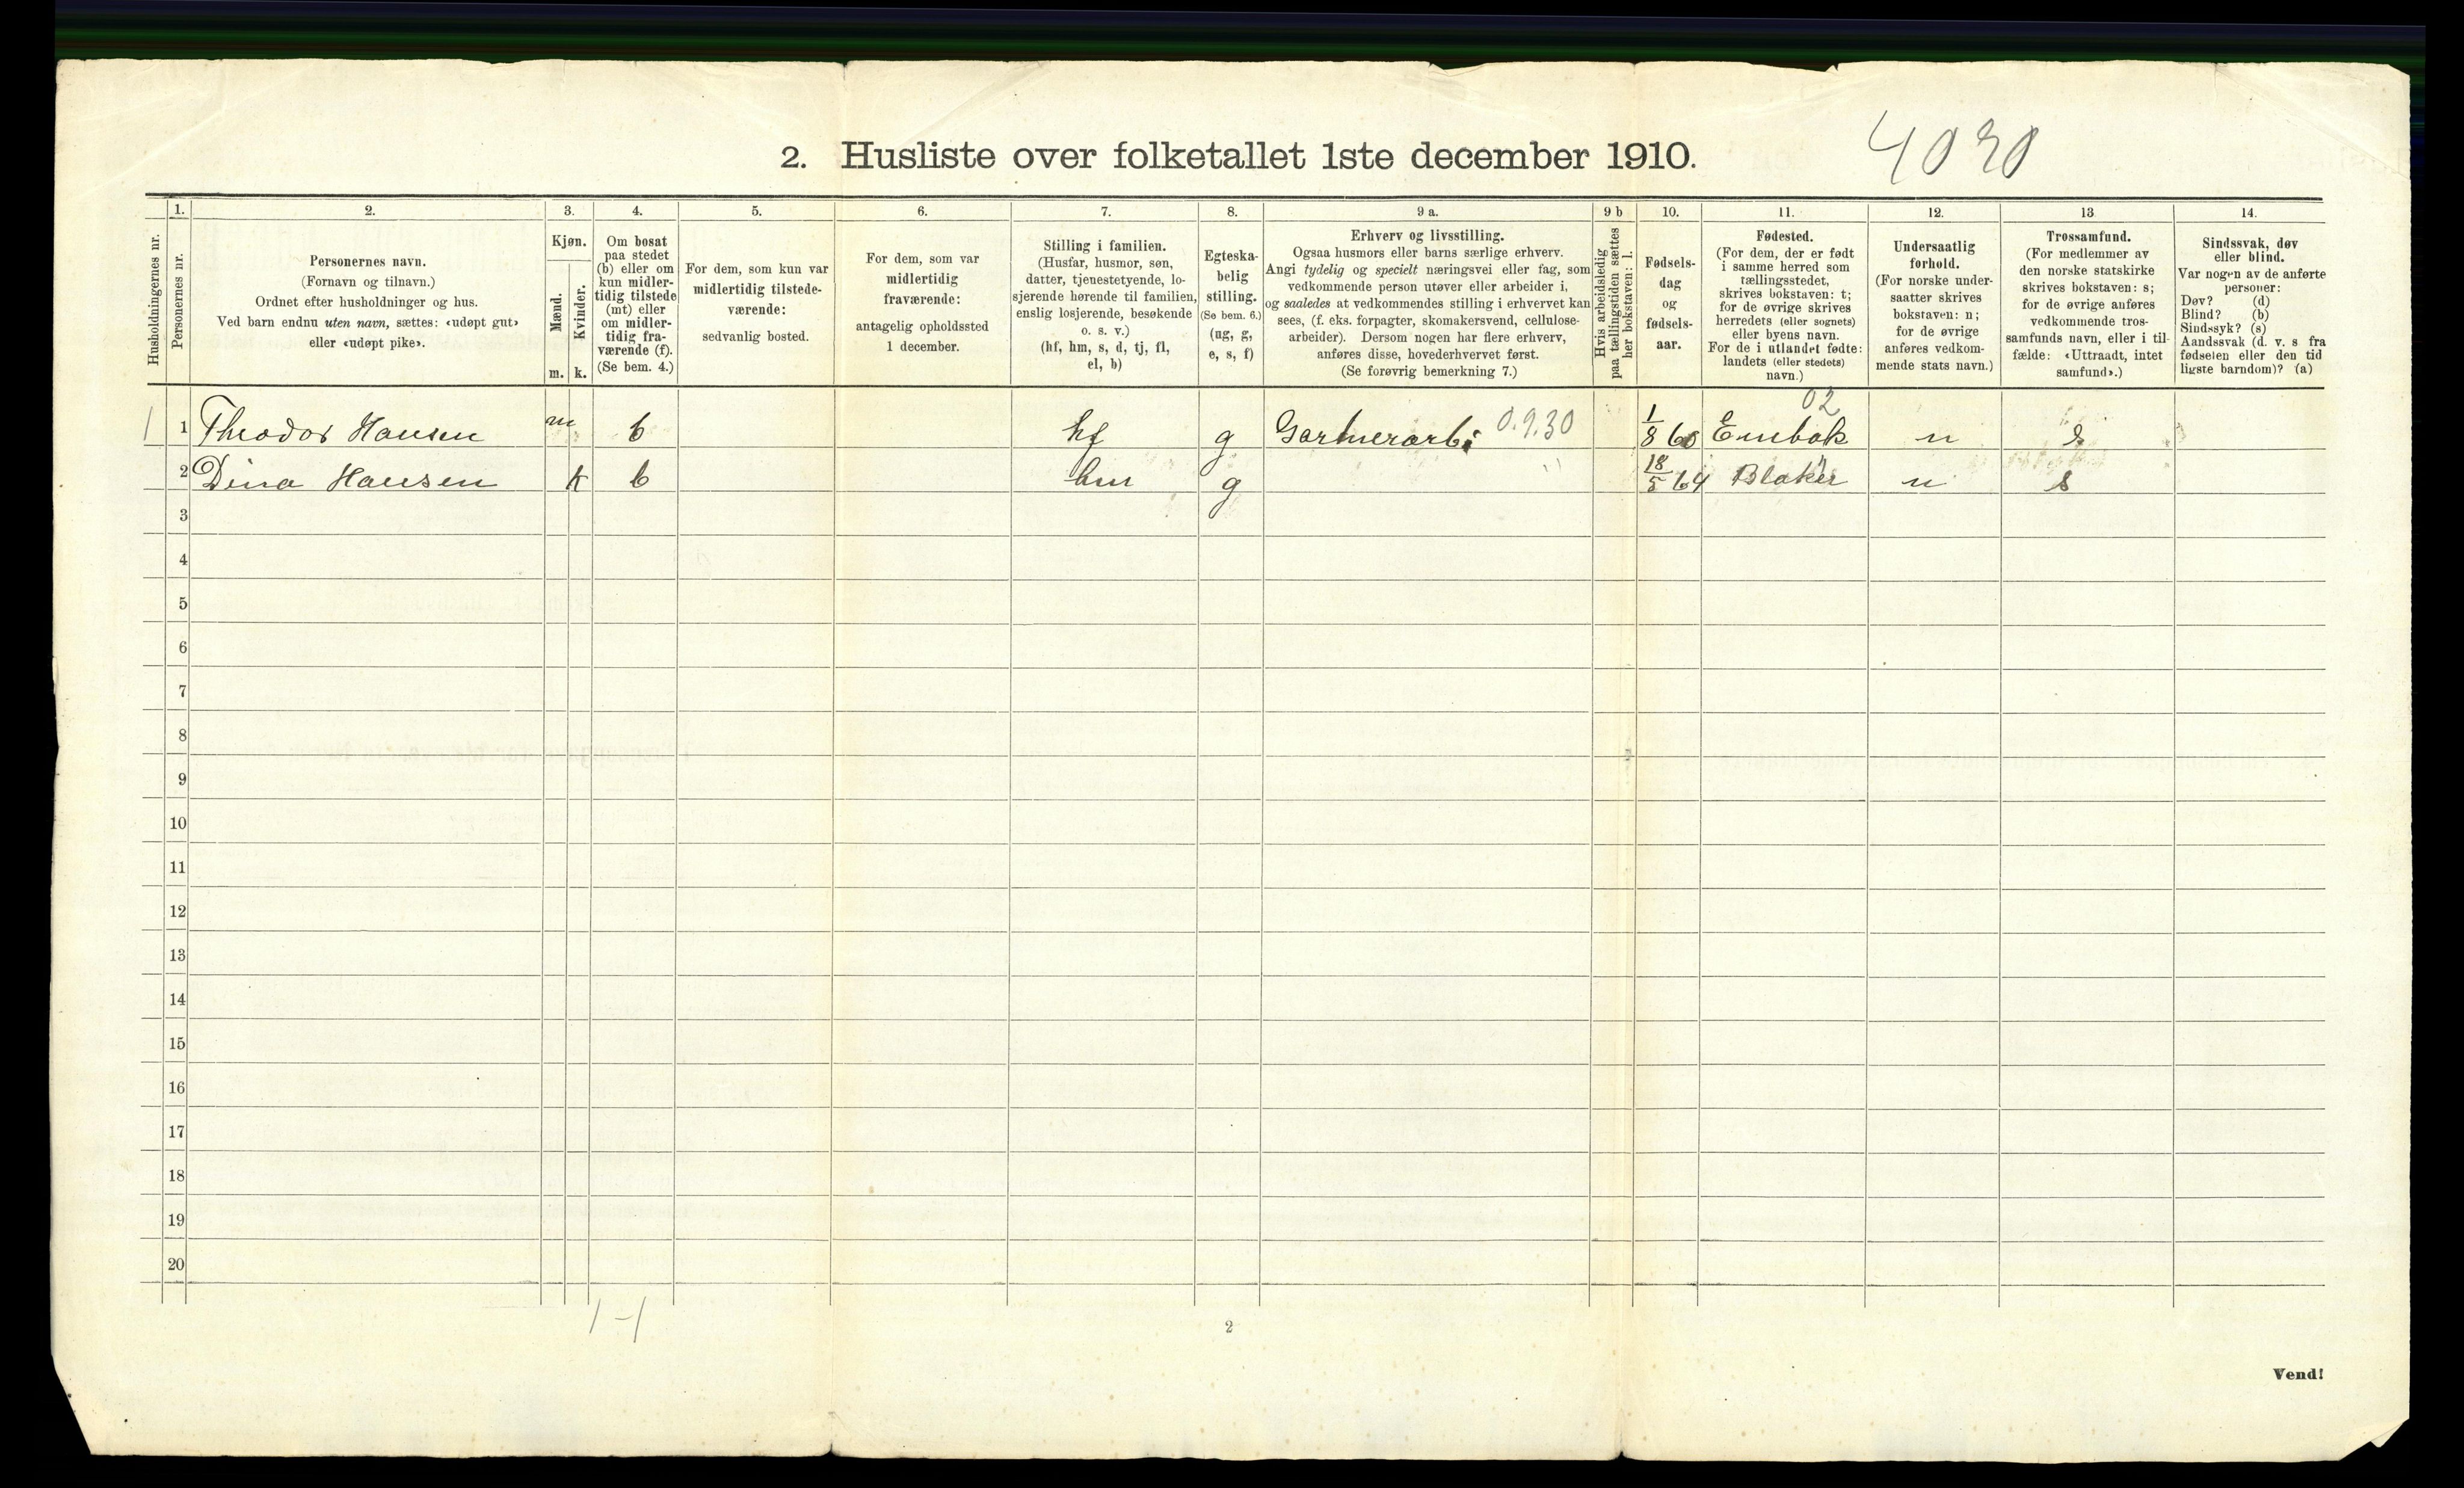 2. Husliste over folketallet 1ste december 1910.
4020
Husholdningernes nr.
1.
Personernes nr.
2.
Personernes navn.
(Fornavn og tilnavn.)
Ordnet efter husholdninger og hus.
Ved barn endnu uten navn, sættes: «udøpt gut»
eller «udøpt pike».
3.
Kjøn.
Mænd.
Kvinder.
m. k.
4.
Om bosat
paa stedet
(b) eller om
kun midler-
tidig tilstede
(mt) eller
om midler-
tidig fra-
værende (f).
(Se bem. 4.)
5.
For dem, som kun var
midlertidig tilstede-
værende:
sedvanlig bosted.
6.
For dem, som var
midlertidig
fraværende:
antagelig opholdssted
1 december.
7.
Stilling i familien.
(Husfar, husmor, søn,
datter, tjenestetyende, lo-
sjerende hørende til familien,
enslig losjerende, besøkende
o. s. v.)
(hf, hm, s, d, tj, fl,
el, b)
8.
Egteska-
belig
stilling.
(Se bem. 6.)
(ug, g,
e, s, f)
9 a.
Erhverv og livsstilling.
Ogsaa husmors eller barns særlige erhverv.
Angi tydelig og specielt næringsvei eller fag, som
vedkommende person utøver eller arbeider i,
og saaledes at vedkommendes stilling i erhvervet kan
sees, (f. eks. forpagter, skomakersvend, cellulose-
arbeider). Dersom nogen har flere erhverv,
anføres disse, hovederhvervet først.
(Se forøvrig bemerkning 7.)
9 b
Hvis arbeidsledig
paa tællingstiden sættes
her bokstaven: l.
10.
Fødsels-
dag
og
fødsels-
aar.
11.
Fødested.
(For dem, der er født
i samme herred som
tællingsstedet,
skrives bokstaven: t;
for de øvrige skrives
herredets (eller sognets)
eller byens navn.
For de i utlandet fødte:
landets (eller stedets)
navn.)
12.
Undersaatlig
forhold.
(For norske under-
saatter skrives
bokstaven: n;
for de øvrige
anføres vedkom-
mende stats navn.)
13
Trossamfund.
(For medlemmer av
den norske statskirke
skrives bokstaven: s;
for de øvrige anføres
vedkommende tros-
samfunds navn, eller i til-
fælde: «Uttraadt, intet
samfund».)
14.
Sindssvak, døv
eller blind.
Var nogen av de anførte
personer:
Døv? (d)
Blind? (b)
Sindssyk? (s)
Aandssvak (d. v. s fra
fødselen eller den tid
ligste barndom)? (a)
02
1 1 Theodor Hansen m b hf g Gartnerarb. 0.9.30 1/8 60 Enebak n s
2 Dina Hansen k b hm g 18/5 64 Blaker n s
3
4
5
6
7
8
9
10
11
12
13
14
15
16
17
18
19
20
1-1
2
Vend!